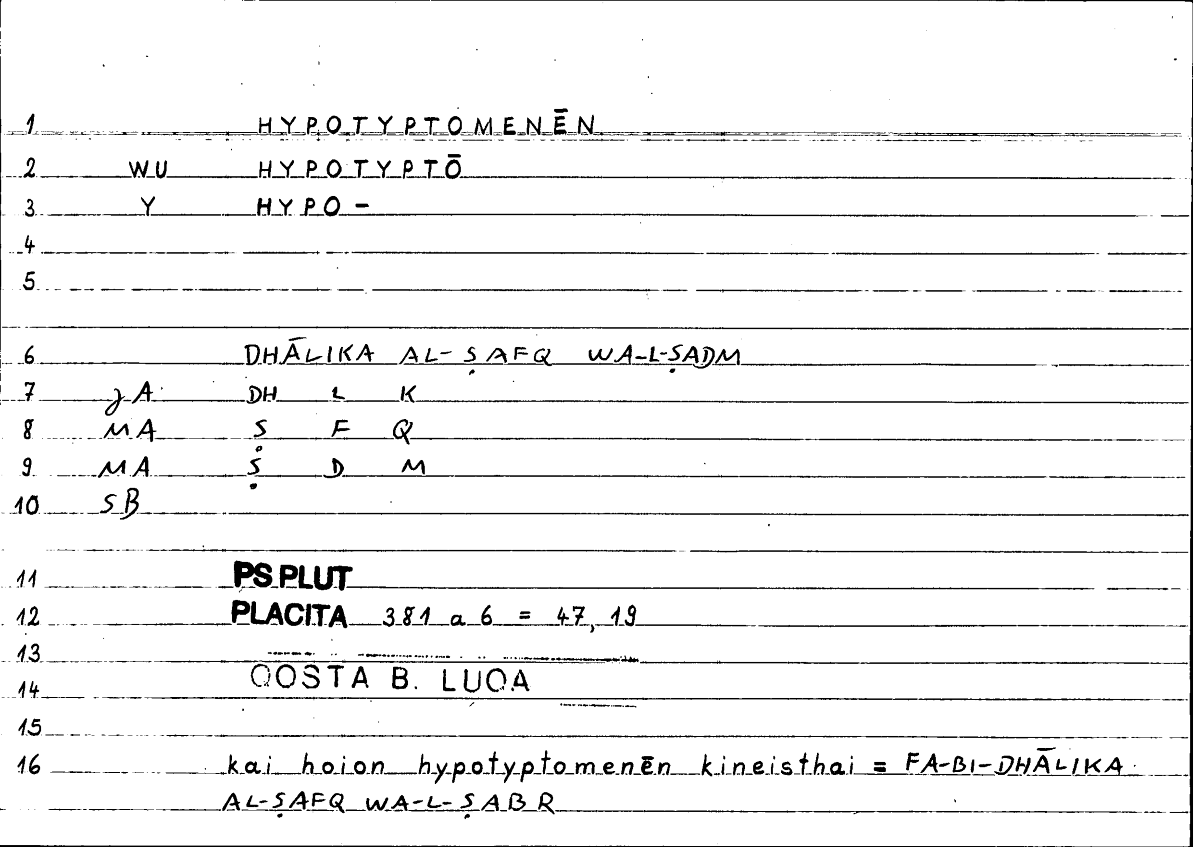 1 HYPOTYPTOMENĒN
2 WU HYPOTYPTŌ
3 Y HYPO-
4
5
6 DHĀLIKA AL-ṢAFQ WA-L-ṢADM
7 jA DH L K
8 MA Ṣ F Q
9 MA Ṣ D M
10 SB
11 PS PLUT
12 PLACITA 381 a 6 = 47, 19
13
14 QOSTA B. LUQA
15
16 kai hoion hypotyptomenēn kineisthai = FA-BI-DHĀLIKA
AL-ṢAFQ WA-L-ṢABR